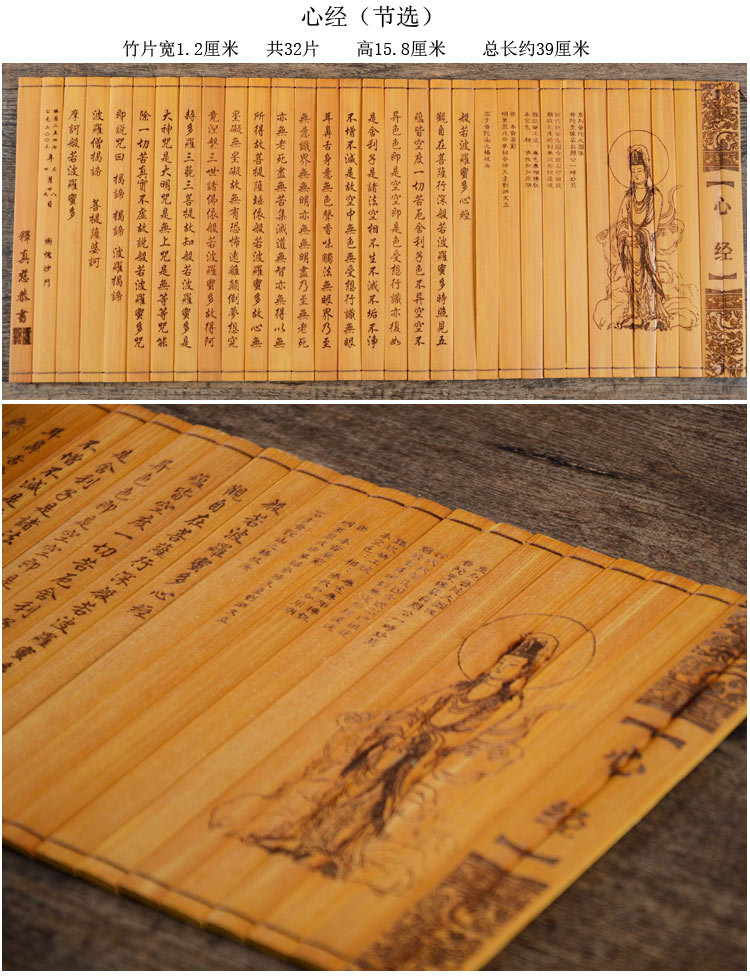 心经（节选）
竹片宽1.2厘米 共32片 高15.8厘米 总长约39厘米
【心经】
般若波羅蜜多心經
觀自在菩薩行深般若波羅蜜多時照見五
蘊皆空度一切苦厄舍利子色不异空空不
异色色即是空空即是色受想行識亦復如
是舍利子是諸法空相不生不滅不垢不淨
不增不減是故空中無色無受想行識無眼
耳鼻舌身意無色聲香味觸法無眼界乃至
無意識界無無明盡乃至無老死
亦無老死盡無苦集滅道無智亦無得以無
所得故菩提薩埵依般若波羅蜜多故心無
罣礙無罣礙故無有恐怖遠離顛倒夢想究
竟涅槃三世諸佛依般若波羅蜜多故得阿
耨多羅三藐三菩提故知般若波羅蜜多是
大神咒是大明咒是無上咒是無等等咒能
除一切苦真實不虛故說般若波羅蜜多咒
即說咒曰 揭諦 揭諦 波羅揭諦
波羅僧揭諦 菩提薩婆訶
摩訶般若波羅蜜多
慚愧沙門
釋真慈恭書
般若波羅蜜多心經
觀自在菩薩行深般若波羅蜜多
蘊皆空度一切苦厄舍利子
异色色即是空空即是
是舍利子是諸法
不增不減是
耳鼻舌
【心经】